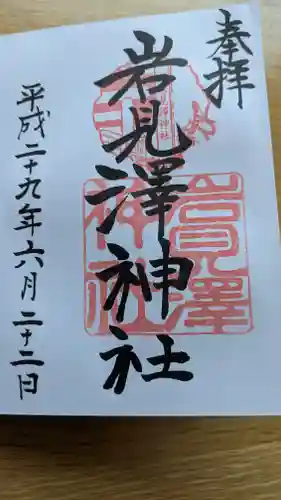 奉拝
岩見澤神社
平成二十九年六月二十二日
岩見澤
神社